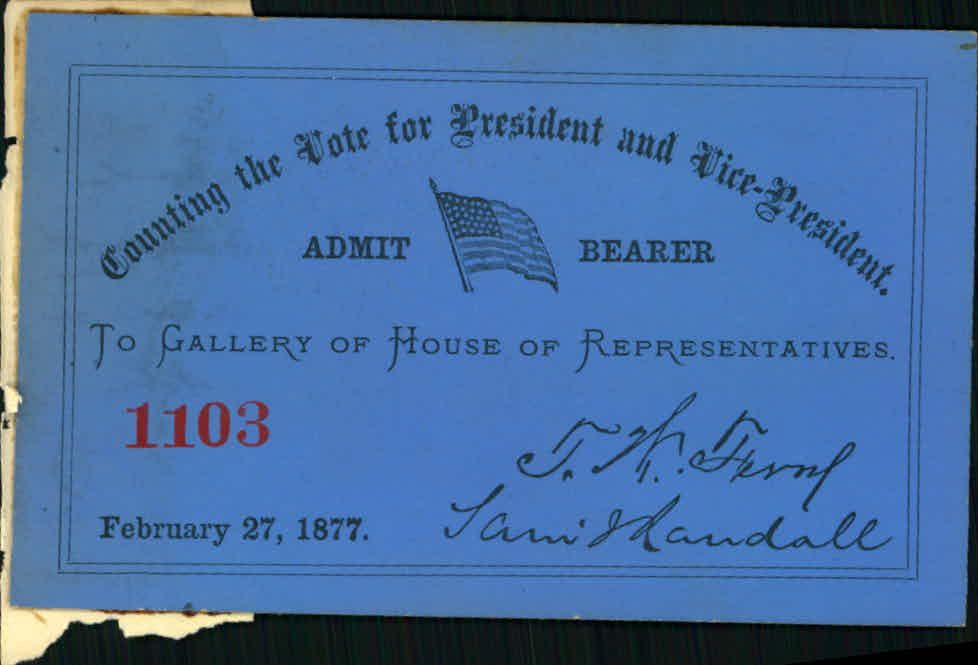 Counting the Vote for President and Vice-President.
ADMIT BEARER
To Gallery of House of Representatives.
1103
T. W. Ferry
February 27, 1877.
Sam J Randall